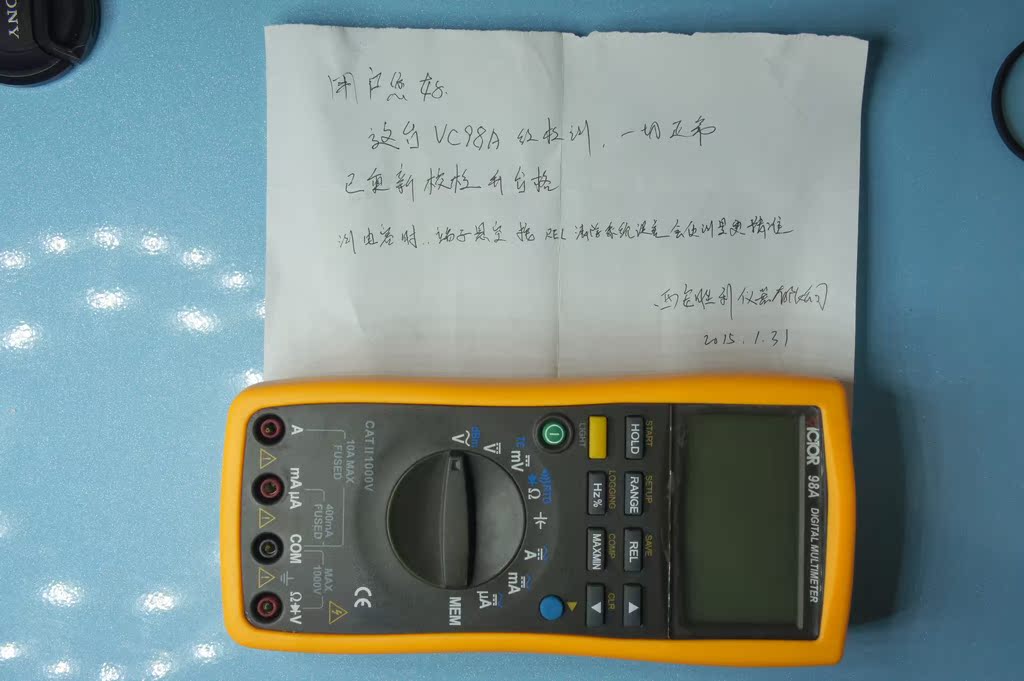 SONY
用户您好
这台VC98A经检测,一切正常
已重新校检为合格
测电容时,端子悬空按REL清除系统误差会使测量更精准
西安胜利仪器有限公司
2015.1.31
VICTOR 98A DIGITAL MULTIMETER
START
HOLD
LIGHT
SETUP
RANGE
LOGGING
Hz%
SAVE
REL
COMP
MAXMIN
CLR
▲
▼
dBm
V
V
TC
mV
RTD
Ω
A
mA
μA
MEM
CAT II 1000V
10A MAX
FUSED
400mA
FUSED
MAX
1000V
A
mA μA
COM
Ω V
CE